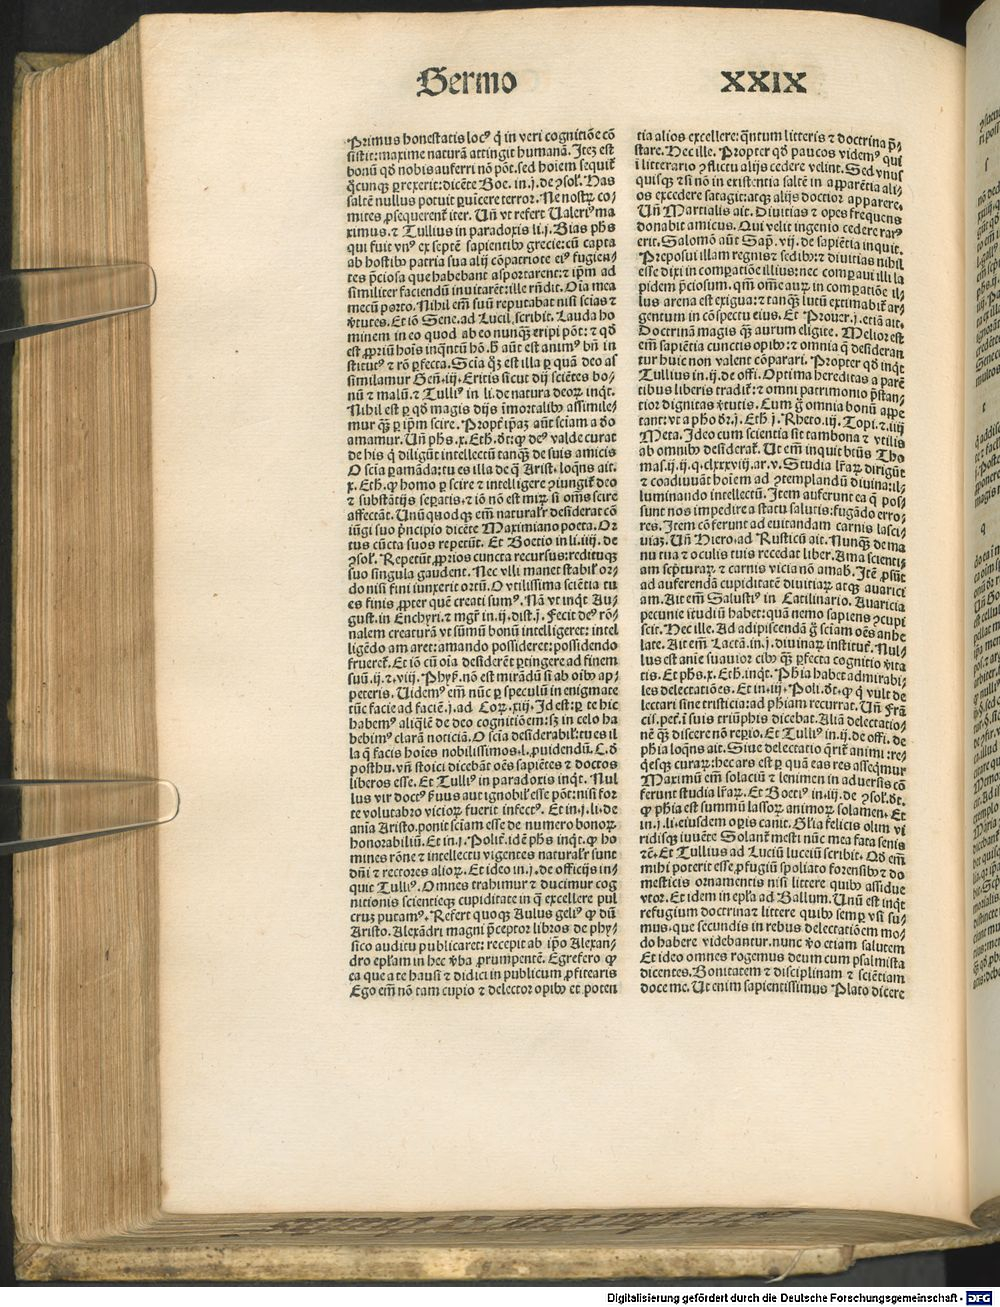 Sermo
XXIX
Primus honestatis locꝰ q̇ in veri cognitiōe cō
sistit: maxime naturā attingit humanā. Itē est
bonū qd̄ nobis auferri nō pōt. sed hoīem sequit̄
q̄cunqꝫ ꝑrexerit: dicēte Boe. in. j. de ꝯsol. Has
saltē nullus potuit ꝑuicere terror. Ne nostrꝝ co-
mites ꝓsequerent̄ iter. Un̄ vt refert Ualeriꝰ ma
ximus. ⁊ Tullius in paradoxis li. j. Bias ph̄s
qui fuit vnꝰ ex septē sapientibꝰ grecie: cū capta
ab hostibꝰ patria sua alij cōpatriote eiꝰ fugien-
tes p̄ciosa que habebant asportarent: ⁊ ip̄m ad
similiter faciendū inuitarēt: ille rn̄dit. Oīa mea
mecū porto. Nihil em̄ suū reputabat nisi sciās ⁊
v̄tutes. Et iō Sene. ad Lucil. scribit. Lauda ho
minem in eo quod ab eo nunqꝫ eripi pōt: ⁊ qd̄
est ꝓpriū hoīs inq̄ntū hō. h̄ aūt est animꝰ bn̄ in
stitutꝰ ⁊ rō ꝑfecta. Scīa q̄ꝫ est illa ꝑ quā deo as
similamur Gen̄. iij. Eritis sicut dij sciētes bo-
nū ⁊ malū. ⁊ Tulliꝰ in li. de natura deoꝝ inqt.
Nihil est ꝑ qd̄ magis dijs īmortalibꝰ assimile-
mur qꝫ ꝑ ip̄m scire. Propt̄ ip̄aꝫ aūt sciam a dō
amamur. Un̄ ph̄s. x. Eth. dt: ꝙ deꝰ valde curat
de his q̇ diligūt intellectū tanqꝫ de suis amicis
O scīa ꝑamāda: tu es illa de q̄ Arist. loqns ait.
x. Eth. ꝙ homo ꝑ scire ⁊ intelligere ꝯiungit̄ deo
⁊ substātijs seꝑatis. ⁊ iō nō est mirꝝ si om̄s scire
affectāt. Unūquodqꝫ em̄ naturalr̄ desiderat cō
iūgi suo p̄ncipio dicēte Maximiano poeta. Or
tus cūcta suos repetūt. Et Boetio in li. iij. de
ꝯsol. Repetūt ꝓprios cuncta recursus: redituqꝫ
suo singula gaudent. Nec vlli manet stabil' or-
do nisi fini iunxerit ortū. O vtilissima sciētia tu
es finis ꝓpter quē creati sumꝰ. Nā vt inqt Au-
gust. in Enchyri. ⁊ mgr̄ in. ij. dist. j. Fecit deꝰ rō-
nalem creaturā vt sūmū bonū intelligeret: intel
ligēdo amaret: amando possideret: possidendo
frueret̄. Et iō cū oīa desiderēt ꝑtingere ad finem
suū. ij. ⁊. viij. Physi. nō est mirādū si ab oībꝰ ap-
peteris. Uidemꝰ em̄ nūc ꝑ speculū in enigmate
tūc facie ad faciē. j. ad Corꝝ. xiij. Id est: ꝑ te hic
habemꝰ aliqlē de deo cognitiōem: sꝫ in celo ha
bebimꝰ clarā noticiā. O scīa desiderabil': tu es il
la q̄ facis hoīes nobilissimos. l. ꝓuidendū. C. d̄
posthu. vn̄ stoici dicebāt oēs sapiētes ⁊ doctos
liberos esse. Et Tulliꝰ in paradoxis inqt. Nul
lus vir doctꝰ ẜuus aut ignobil' esse pōt: nisi for
te volutabro vicioꝝ fuerit infectꝰ. Et in. j. li. de
aīa Aristo. ponit sciam esse de numero bonoꝝ
honorabiliū. Et in. j. Polit̄. idē ph̄s inqt. ꝙ ho
mines rōne ⁊ intellectu vigentes naturalr̄ sunt
dn̄i ⁊ rectores alioꝝ. Et ideo in. j. de officijs in-
quit Tulliꝰ. Omnes trahimur ⁊ ducimur cog
nitionis scientieqꝫ cupiditate in q̄ excellere pul
crum putamꝰ. Refert quoqꝫ Aulus geliꝰ ꝙ dū
Aristo. Alexādri magni p̄ceptor libros de phy-
sico auditu publicaret: recepit ab ip̄o Alexan-
dro ep̄lam in hec v̄ba ꝓrumpentē. Egrefero ꝙ
ea que a te hausi ⁊ didici in publicum ꝓfitearis
Ego em̄ nō tam cupio ⁊ delector opibꝰ et poten
tia alios excellere: qntum litteris ⁊ doctrina p̄-
stare. Hec ille. Propter qd̄ paucos videmꝰ qui
ī litterario ꝯflictu alijs cedere velint. Sed vnus
quisqꝫ ⁊ si nō in existentia saltē in apparētia ali-
os excedere satagit: atqꝫ alijs doctior apparere.
Un̄ Martialis ait. Diuitias ⁊ opes frequens
donabit amicus. Qui velit ingenio cedere rarꝰ
erit. Salomō aūt Sap̄. vij. de sapiētia inquit.
Preposui illam regnis ⁊ sedibꝰ: ⁊ diuitias nihil
esse dixi in comꝑatiōe illius: nec comꝑaui illi la
pidem p̄ciosum. qm̄ om̄e aurum in comꝑatiōe il-
lus arena est exigua: ⁊ tanqꝫ lutū extimabit̄ ar-
gentum in cōspectu eius. Et Prouer. j. etiā ait.
Doctrinā magis qꝫ aurum eligite. Melior est
em̄ sapiētia cunctis opibꝰ: ⁊ omnia q̄ desideran
tur huic non valent cōparari. Propter qd̄ inqt
Tullius in. ij. de offi. Optima hereditas a parē
tibus liberis tradit̄: ⁊ omni patrimonio p̄stan-
tior dignitas v̄tutis. Cum g̊ omnia bonū appe
tant: vt a pho dr̄. j. Eth. j. Rheto. iij. Topi. ⁊. iiij
Meta. Ideo cum scientia sit tam bona ⁊ vtilis
ab omnibꝰ desiderat̄. Ut em̄ inquit btūs Tho
mas. ij. ij. q. clxxxviij. ar. v. Studia lr̄aꝝ dirigūt
⁊ coadiuuāt hoīem ad ꝯtemplandū diuina: il-
luminando intellectū. Item auferunt ea q̄ pos-
sunt nos impedire a statu salutis: fugādo erro-
res. Item cōferunt ad euitandam carnis lasci-
uiaꝫ. Un̄ Hiero. ad Rusticū ait. Nunqꝫ de ma
nu tua ⁊ oculis tuis recedat liber. Ama scienti-
am scp̄turaꝝ ⁊ carnis vicia nō amab̄. Itē ꝓsūt
ad auferendā cupiditatē diuitiaꝝ atqꝫ auarici
am. Ait em̄ Salustiꝰ in Catilinario. Auaricia
pecunie studiū habet: quā nemo sapiens ꝯcupi
scit. Hec ille. Ad adipiscendā g̊ sciam oēs anhe
late. Ait em̄ Lactā. in. j. diuinaꝝ institut̄. Nul-
lus est anīe suauior cibꝰ qꝫ ꝑfecta cognitio v̄ita
tis. Et ph̄s. x. Eth. inqt. Ph̄ia habet admirabi-
les delectatiōes. Et in. iij. Poli. dt. ꝙ q̇ vult de
lectari sine tristicia: ad ph̄iam recurrat. Un̄ Frā
cis. pet. ī suis triūphis dicebat. Aliā delectatio-
nē qꝫ discere nō reꝑio. Et Tulliꝰ in. ij. de offi. de
ph̄ia loqns ait. Siue delectatio qrit̄ animi: re-
q̇esqꝫ curaꝝ: hec ars est ꝑ quā eas res asseqmur
Maximū em̄ solaciū ⁊ lenimen in aduersis cō
ferunt studia lr̄aꝝ. Et Boetiꝰ in. iij. de ꝯsol. dt.
ꝙ ph̄ia est summū lassoꝝ animoꝝ solamen. Et
in. j. li. eiusdem oꝑis canit. Gl̄ia felicis olim vi
ridisqꝫ iuuēte Solant̄ mesti nūc mea fata senis
⁊c. Et Tullius ad Luciū luceiū scribit. Qd̄ em̄
mihi poterit esse ꝓfugiū spoliato forensibꝰ ⁊ do
mesticis ornamentis nisi littere quibꝰ assidue
vtor. Et idem in ep̄la ad Gallum. Unū est inqt
refugium doctrina ⁊ littere quibꝰ semꝑ vsi su-
mus. que secundis in rebus delectatiōem mo-
do habere videbantur. nunc v̄o etiam salutem
Et ideo omnes rogemus deum cum psalmista
dicentes. Bonitatem ⁊ disciplinam ⁊ sciētiam
doce me. Ut enim sapientissimus Plato dicere
Digitalisierung gefördert durch die Deutsche Forschungsgemeinschaft - DFG